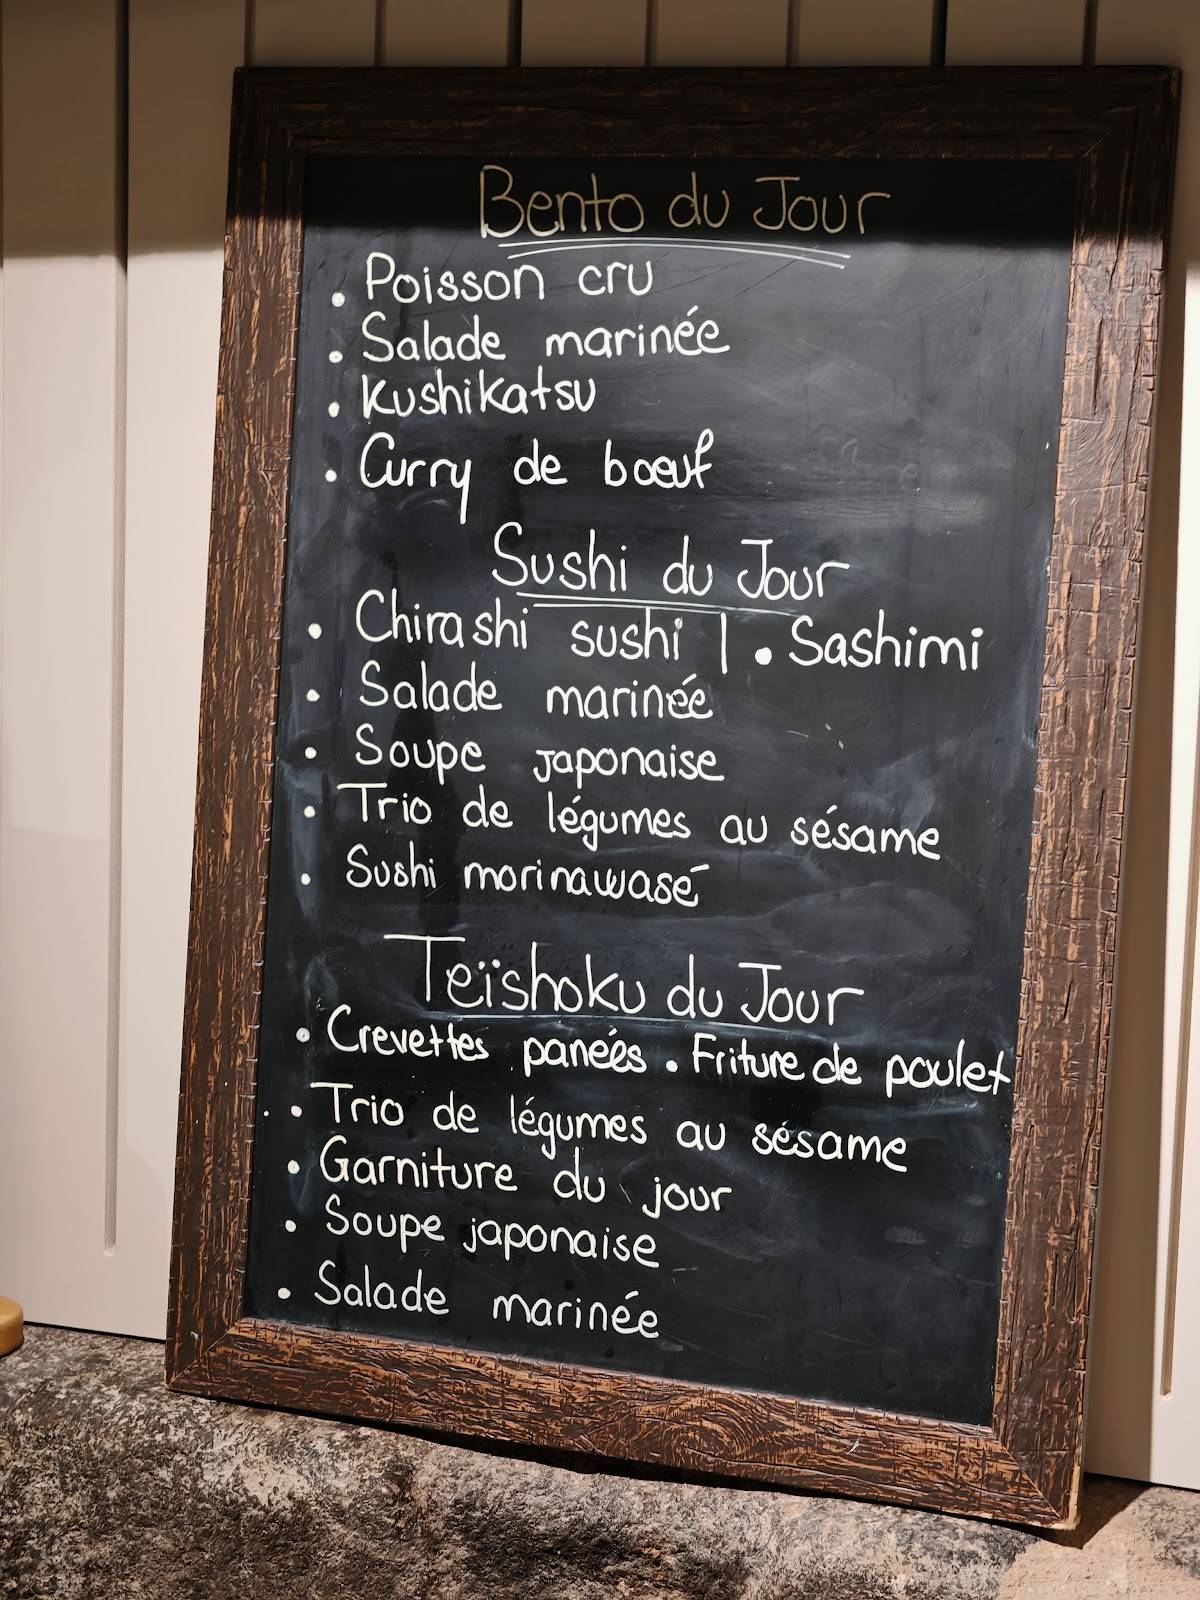 Bento du Jour
• Poisson cru
• Salade marinée
• Kushikatsu
• Curry de bœuf
Sushi du Jour
• Chirashi sushi | • Sashimi
• Salade marinée
• Soupe japonaise
• Trio de légumes au sésame
• Sushi morinawasé
Teïshoku du Jour
• Crevettes panéés • Friture de poulet
• Trio de légumes au sésame
• Garniture du jour
• Soupe japonaise
• Salade marinée